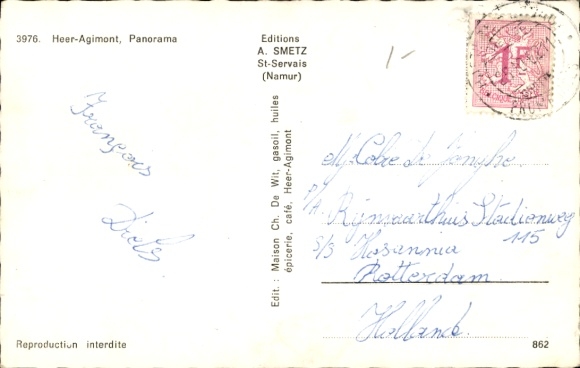 3976. Heer-Agimont, Panorama
Editions
A. SMETZ
St-Servais
(Namur)
1-
1F
François
Diels
Edit.: Maison Ch. De Wit, gasoil, huiles
épicerie, café, Heer-Agimont
P/A Rijnvaarthuis Stadionweg
115
S/S Hosanna
Rotterdam
Holland
Reproduction interdite
862